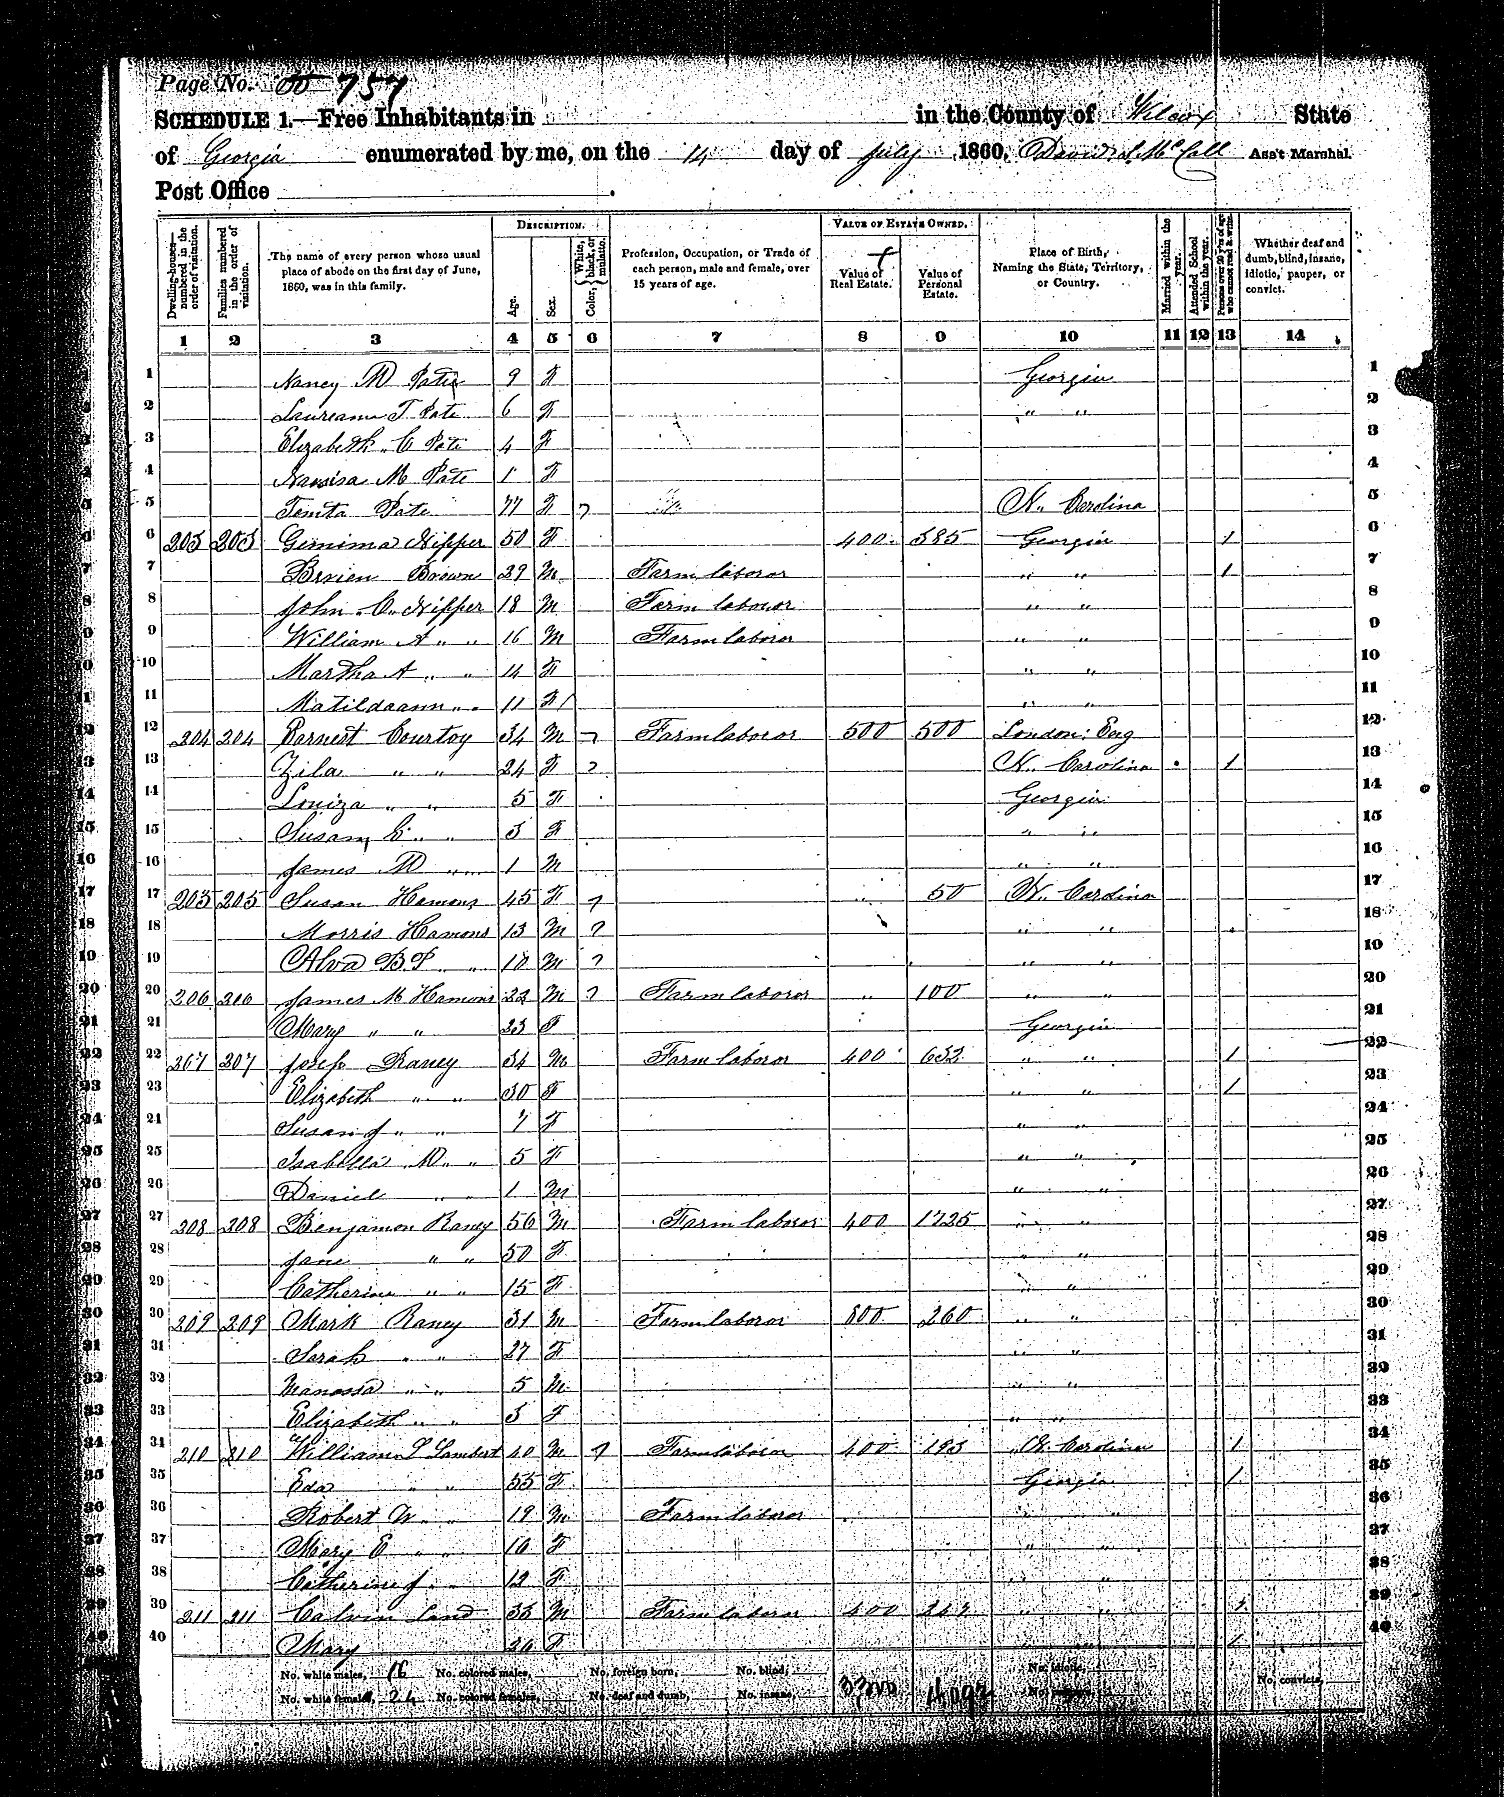 Page No. 757
SCHEDULE 1.—Free Inhabitants in in the County of Wilcox State
of Georgia enumerated by me, on the 14 day of July 1860. David S. McCall Ass't Marshal.
Post Office
Dwelling-houses—numbered in the order of visitation. Families numbered in the order of visitation. The name of every person whose usual place of abode on the first day of June, 1860, was in this family. DESCRIPTION. Age. Sex. Color, White, black, or mulatto. Profession, Occupation, or Trade of each person, male and female, over 15 years of age. VALUE OF ESTATE OWNED. Value of Real Estate. Value of Personal Estate. Place of Birth, Naming the State, Territory, or Country. Married within the year. Attended School within the year. Persons over 20 y'rs of age who cannot read & write. Whether deaf and dumb, blind, insane, idiotic, pauper, or convict.
1 2 3 4 5 6 7 8 9 10 11 12 13 14
1 Nancy M Pate 9 F Georgia 1
2 Laureann T Pate 6 F " " 2
3 Elizabeth C Pate 4 F 3
4 M Pate 1 F 4
5 Pate 77 F N. Carolina 5
6 203 203 Gemima Nipper 50 F 400 385 Georgia 1 6
7 Brown 29 M Farm laboror " " 1 7
8 John C. Nipper 18 M Farm labouor " " 8
9 William A " " 16 M Farm laboror " " 9
10 Martha A " " 14 F " " 10
11 Matildaann " " 11 F " " 11
12 204 204 Earnest Courtoy 34 M Farm laboror 500 500 London: Eng 12
13 Zila " " 24 F N. Carolina 1 13
14 Louiza " " 5 F Georgia 14
15 Susan E " " 3 F " " 15
16 James M " " 1 M " " 16
17 205 205 Susan Hamons 45 F 50 N. Carolina 17
18 Morris Hamons 13 M " " 18
19 Alva B P " " 10 M " " 19
20 206 206 James M Hamons 22 M Farm laboror " 100 " " 20
21 Mary " " 23 F Georgia 21
22 207 207 Josep Raney 34 M Farm laboror 400 632 " " 1 22
23 Elizabeth " " 30 F " " 1 23
24 Susan J " " 7 F " " 24
25 Isabella M " " 5 F " " 25
26 Daniel " " 1 M " " 26
27 208 208 Benjamon Raney 56 M Farm laboror 400 1225 " " 27
28 Jane " " 50 F " " 28
29 Catherine " " 15 F " " 29
30 209 209 Mark Raney 31 M Farm laboror 800 260 " " 30
31 Sarah " " 27 F " " 31
32 Manassa " " 5 M " " 32
33 Elizabeth " " 3 F " " 33
34 210 210 William L Lambert 40 M Farm laboror 400 N. Carolina 1 34
35 Eda " " 35 F Georgia 1 35
36 Robert W " " 19 M Farm laboror " " 36
37 Mary E " " F " " 37
38 Catherine J " " 12 F " " 38
39 211 211 Calvin Land 33 M Farm laboror 400 " " 39
40 Mary F " " 1 40
No. white males, 16 No. colored males, No. foreign born, No. blind, No. idiotic,
No. white females, 24 No. colored females, No. deaf and dumb, No. insane, No. convicts,